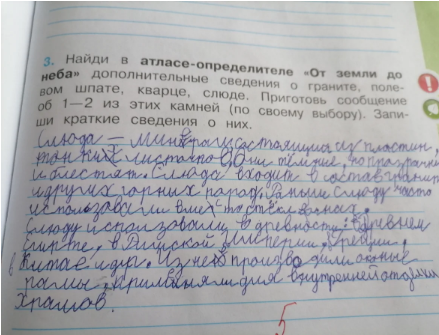 3. Найди в атласе-определителе «От земли до
неба» дополнительные сведения о граните, поле-
вом шпате, кварце, слюде. Приготовь сообщение
об 1—2 из этих камней (по своему выбору). Запи-
ши краткие сведения о них.
Слюда – минерал, состоящий из пластин,
тонких листиков. Они тёмные, но прозрачны
и блестят. Слюда входит в состав гранита
и других горных парод. Раньше слюду часто
использовали вместо стёкол в окнах.
Слюду использовали в древности: в Древнем
в Римской империи, Греции,
в Китае и др. Из неё производили оконные
рамы и применяли для внутренней отделки
храмов.
5